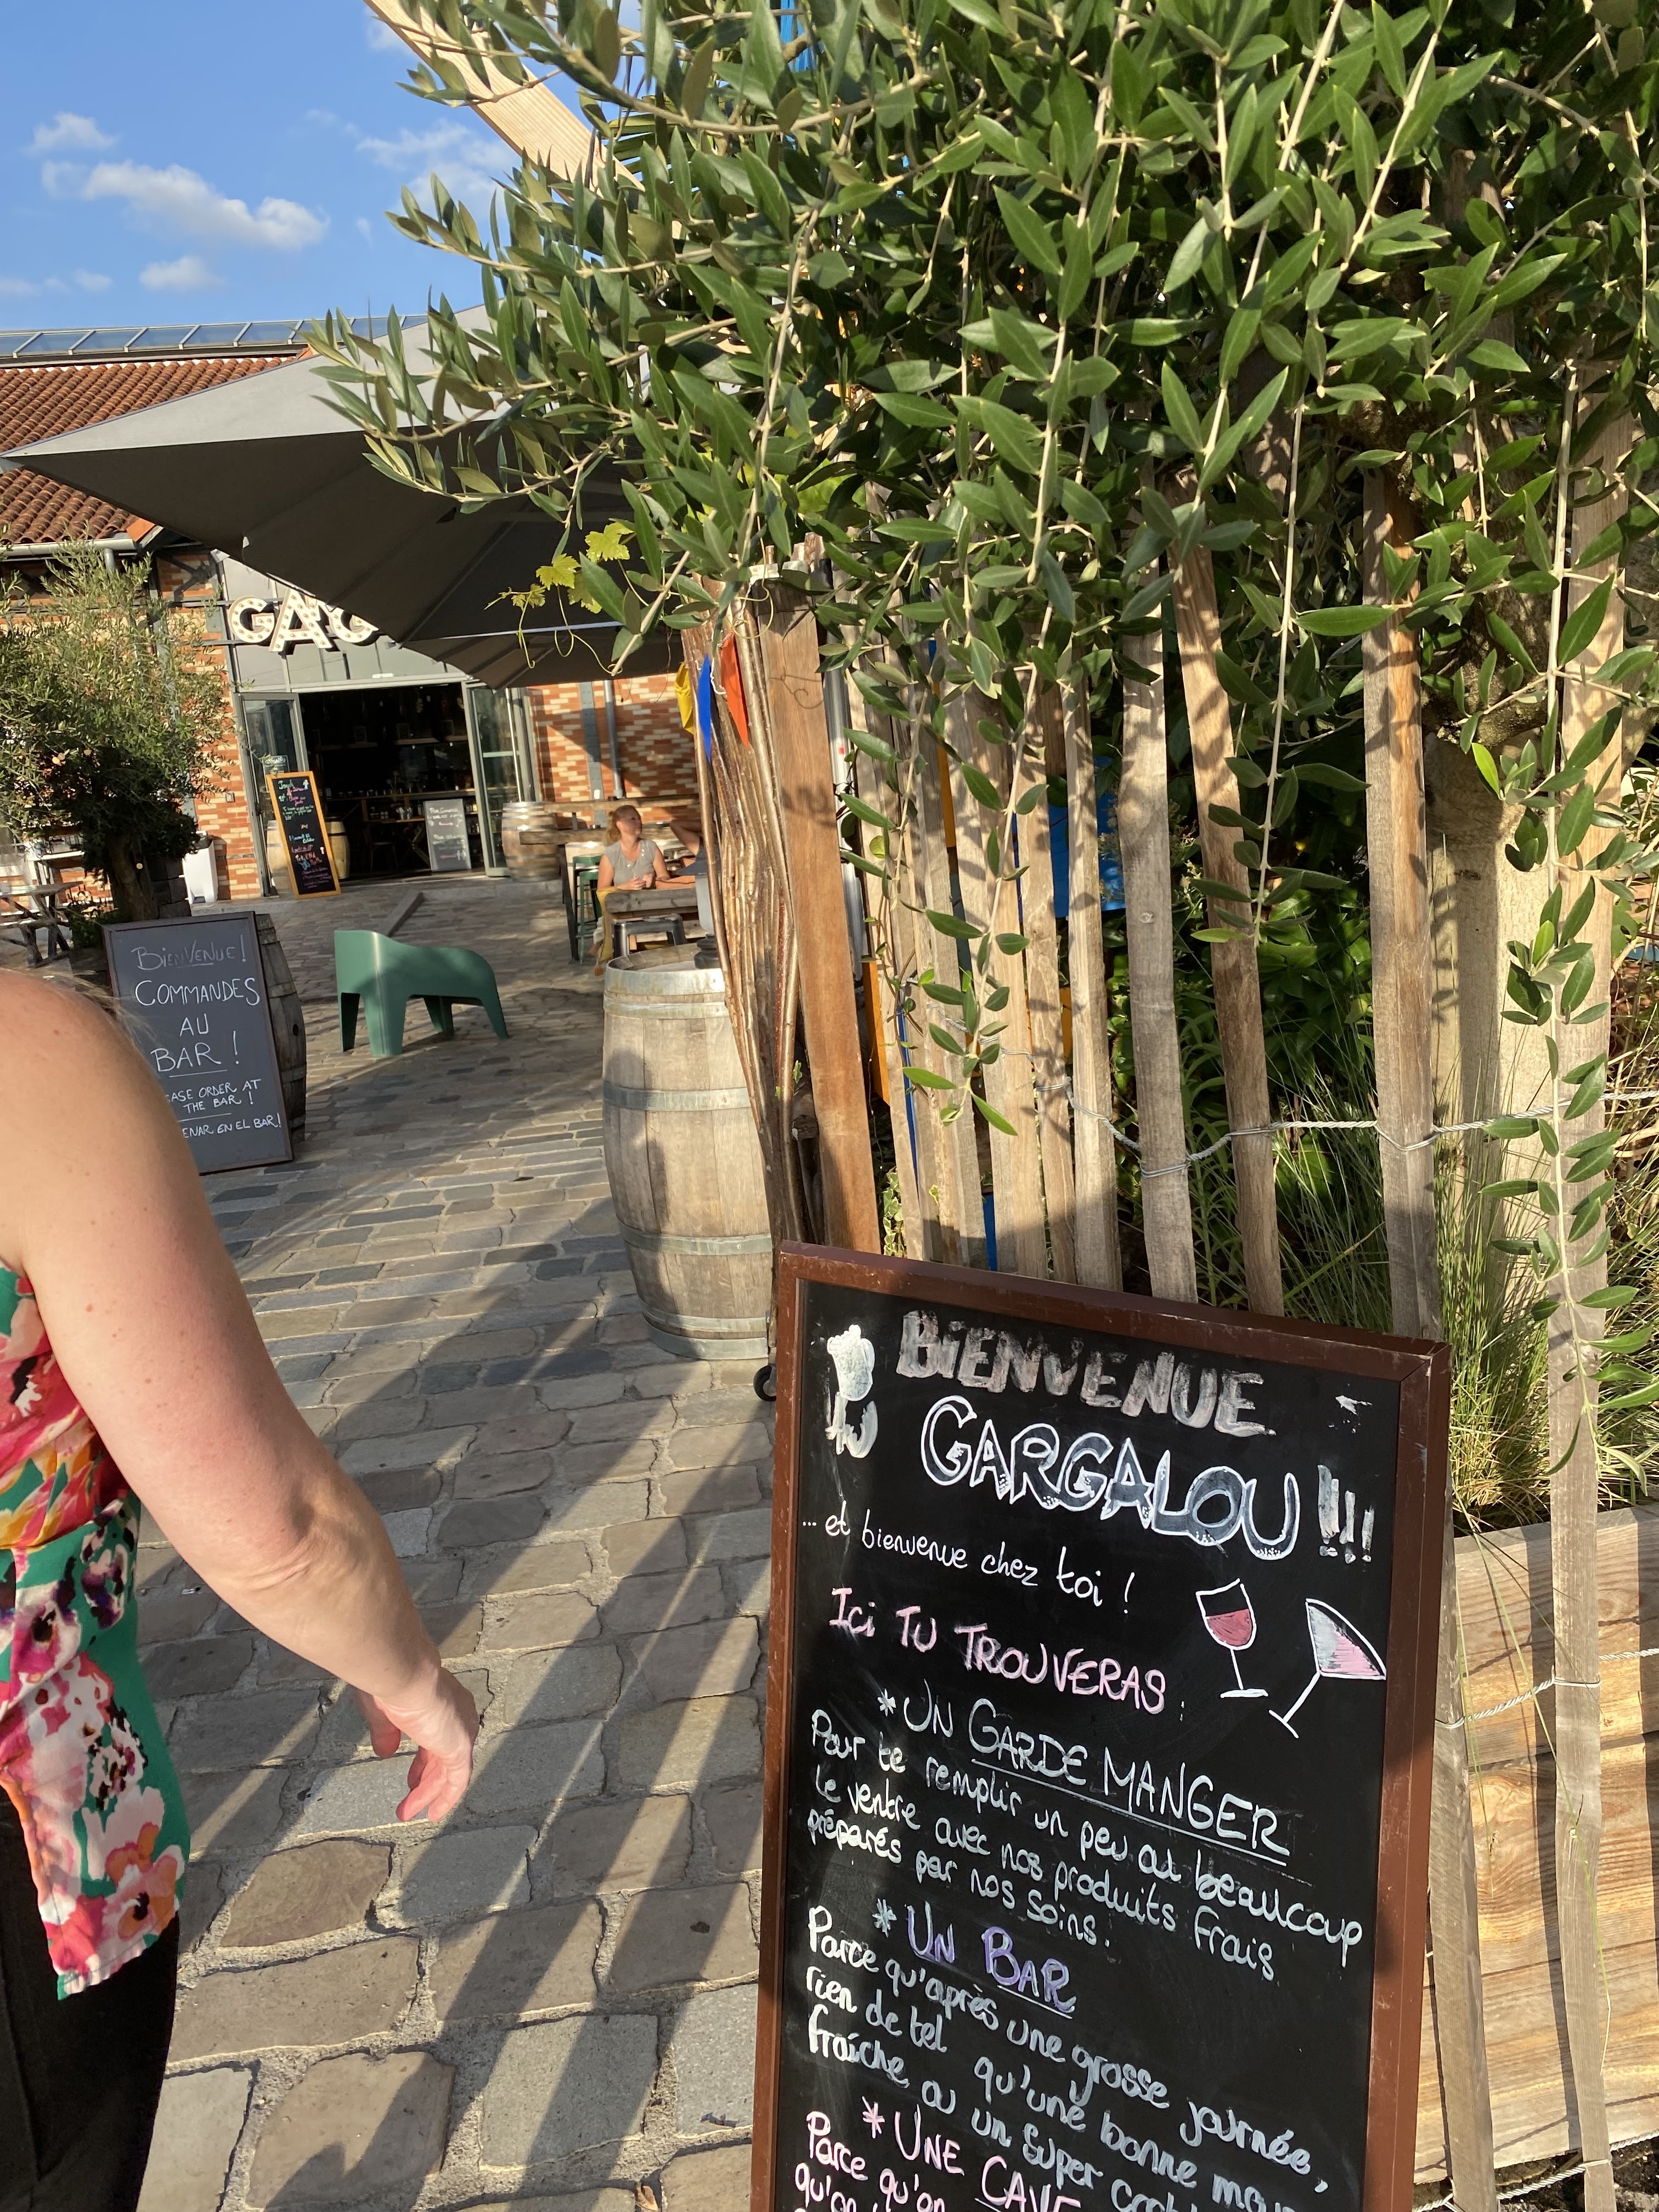 BIENVENUE!
COMMANDES
AU
BAR!
ORDER AT
THE BAR!
EN EL BAR!
BIENVENUE
GARGALOU !!!
... et bienvenue chez toi !
Ici TU TROUVERAS :
* UN GARDE MANGER
Pour te remplir un peu ou beaucoup
le ventre avec nos produits frais
préparés par nos soins.
* UN BAR
Parce qu'après une grosse journée,
rien de tel qu'une bonne
fraîche ou un super
* UNE CAVE
Parce qu'on
qu'on